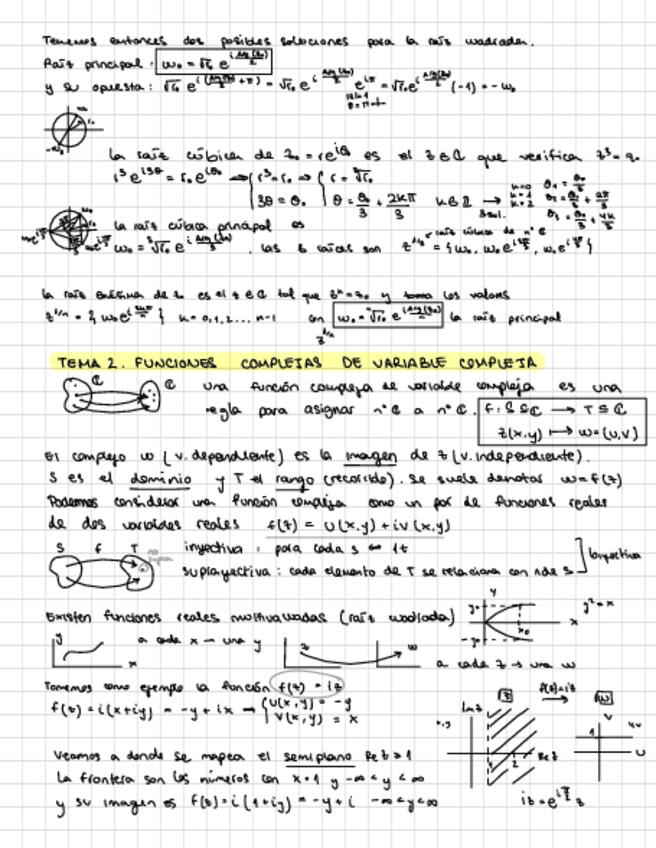 Tenemos entonces dos posibles soluciones para la raíz cuadrada.
Raíz principal: w₀ = √r₀ e^{i Arg(z₀)/2}
y su opuesta: √r₀ e^{i(Arg(z₀)/2 + π)} = √r₀ e^{i Arg(z₀)/2} e^{iπ} = √r₀ e^{i Arg(z₀)/2} (-1) = -w₀
la raíz cúbica de z₀ = re^{iθ} es el z∈ℂ que verifica z³ = z₀
r³ e^{i3θ} = r₀ e^{iθ₀} ⟹ { r³ = r₀ ⟹ { r = ∛r₀
3θ = θ₀ θ = θ₀/3 + 2kπ/3 k∈ℤ → 3sol. k=0 k=1 k=2
la raíz cúbica principal es
w₀ = ∛r₀ e^{i Arg(z₀)/3} . las 3 raíces son
la raíz enésima de z₀ es el z∈ℂ tal que zⁿ = z₀ y toma los valores
z^{1/n} = { w₀ e^{i 2kπ/n} } k = 0,1,2... n-1 con w₀ = ⁿ√r₀ e^{i Arg(z₀)/n} la raíz principal
TEMA 2. FUNCIONES COMPLEJAS DE VARIABLE COMPLEJA
ℂ ℂ una función compleja de variable compleja es una
regla para asignar nº ℂ a nº ℂ. f: S ⊆ ℂ → T ⊆ ℂ
z(x,y) ↦ w = (u,v)
El complejo w (v. dependiente) es la imagen de z (v. independiente).
S es el dominio y T el rango (recorrido). Se suele denotar w = f(z)
Podemos considerar una función compleja como un par de funciones reales
de dos variables reales f(z) = u(x,y) + iv(x,y)
S f T inyectiva : para cada s ↔ 1t
suprayectiva : cada elemento de T se relaciona con 1 de S ] biyectiva
Existen funciones reales multivaluadas (raíz cuadrada) y x y² = x
y x a cada x → una y z w
a cada z → una w
Tomemos como ejemplo la función f(z) = iz
f(z) = i(x+iy) = -y + ix ⟹ { u(x,y) = -y
v(x,y) = x
z f(z)=iz w
Im z Re z 1 2 v u
Veamos a donde se mapea el semiplano Re z > 1
La frontera son los números con x = 1 y -∞ < y < ∞
y su imagen es f(z) = i(1+iy) = -y + i -∞ < y < ∞ iz = e^{iπ/2} z